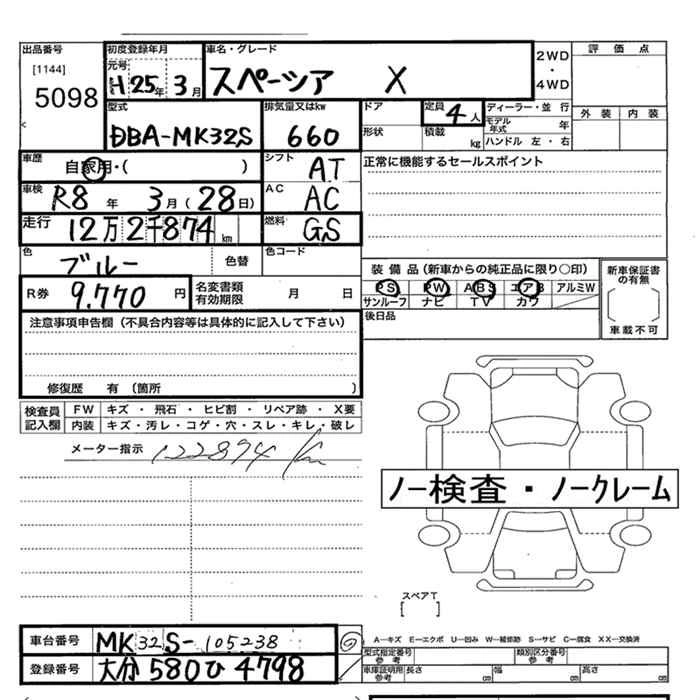 出品番号 初度登録年月 車名・グレード 2WD ・ 4WD 評価点
[1144] 元号 H25年3月 スペーシア X
5098 外装 内装
型式 排気量又はkw ドア 定員 4人 ディーラー・並行
DBA-MK32S 660 形状 積載 kg モデル年式 年
ハンドル 左・右
車歴 自家用・( ) シフト AT 正常に機能するセールスポイント
車検 R8年 3月(28日) AC AC
走行 12万2千874km 燃料 GS
色 ブルー 色替 色コード
R券 9,770円 名変書類有効期限 月 日
装備品(新車からの純正品に限り○印) 新車保証書の有無
PS PW ABS エアB アルミW
サンルーフ ナビ TV カワ
車載不可
後日品
注意事項申告欄(不具合内容等は具体的に記入して下さい)
修復歴 有 (箇所 )
検査員記入欄 FW キズ・飛石・ヒビ割・リペア跡・X要
内装 キズ・汚レ・コゲ・穴・スレ・キレ・破レ
メーター指示 122874km
ノー検査・ノークレーム
スペアT
[ ]
車台番号 MK32S-105238
登録番号 大分580ひ4798
A―キズ E―エクボ U―凹み W―補修跡 S―サビ C―腐食 XX―交換済
型式指定番号 参考 類別区分番号 参考
車庫証明用 参考 長さ cm 幅 cm 高さ cm